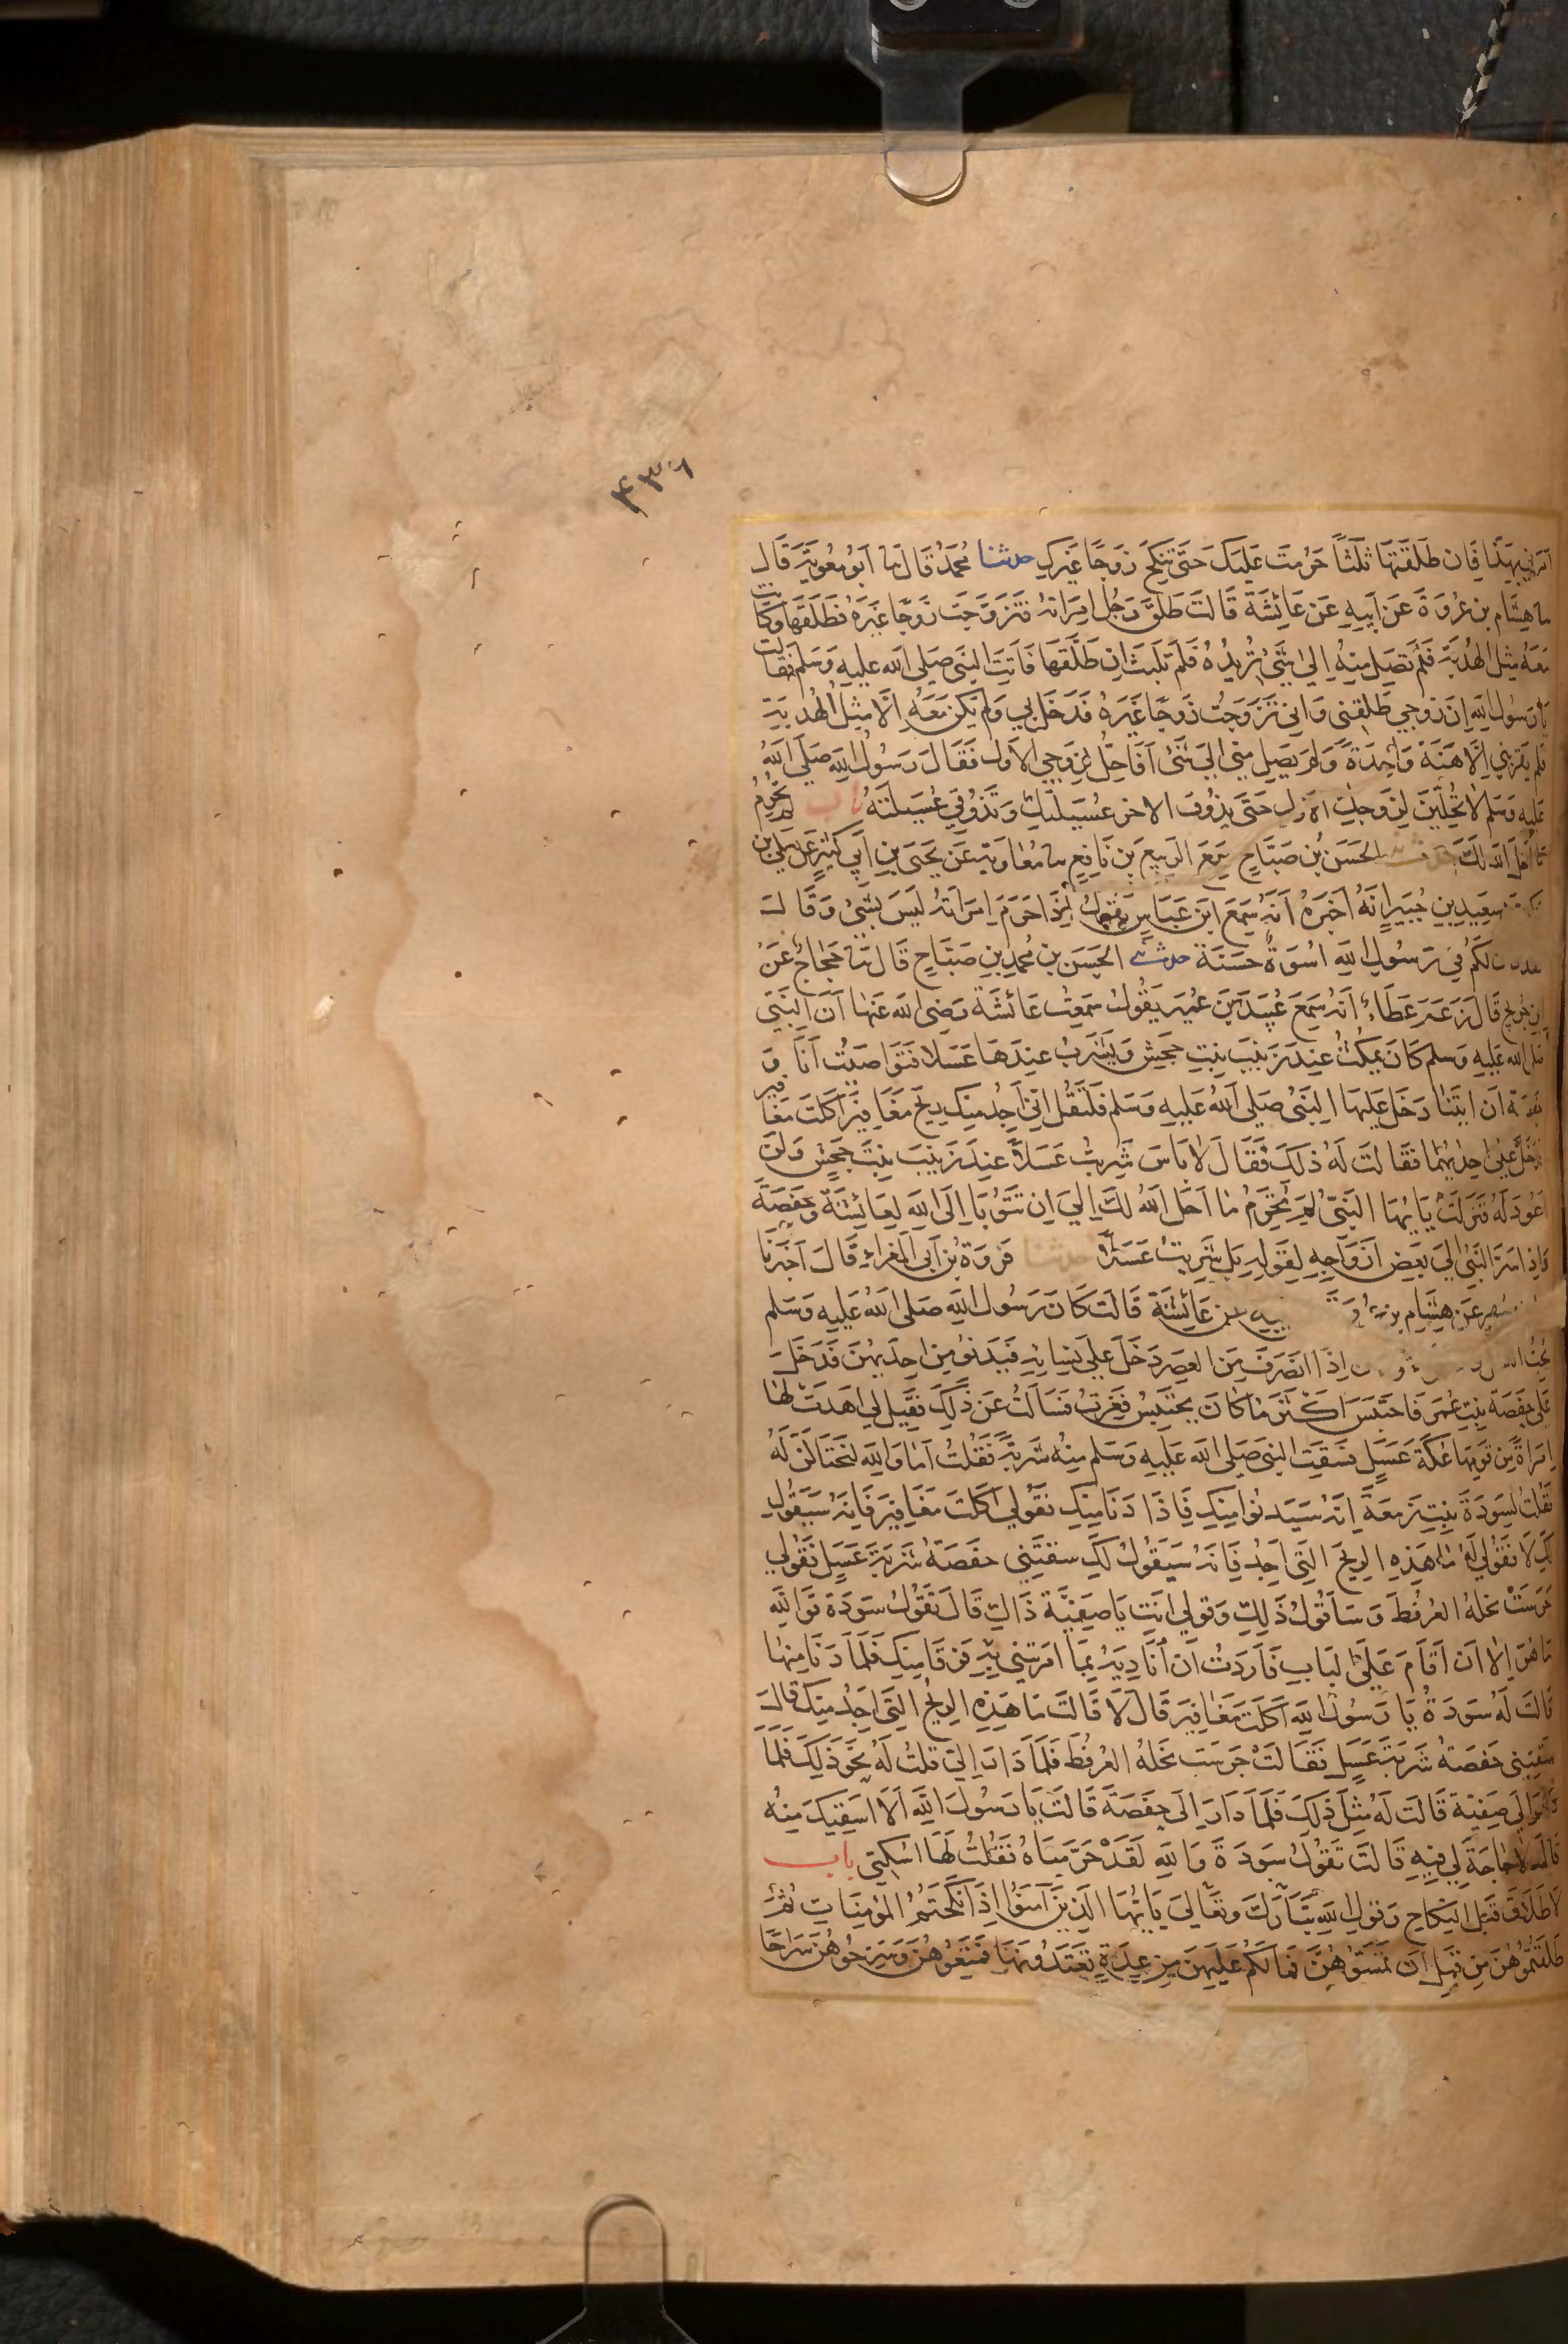 ۴۳۶
امرني بهذا فان طلقتها ثلثا حرمت عليك حتى تنكح زوجا غيرك حدثنا محمد قال نا ابو معوية قال
نا هشام بن عروة عن ابيه عن عائشة قالت طلق رجل امراته فتزوجت زوجا غيره فطلقها وكانت
معه مثل الهدبة فلم تصل منه الى شئ تريده فلم تلبث ان طلقها فاتت النبي صلى الله عليه وسلم فقالت
يا رسول الله ان زوجي طلقني واني تزوجت زوجا غيره فدخل بي ولم يكن معه الا مثل الهدبة
فلم يقربني الا هنة واحدة ولم يصل مني الى شئ افاحل لزوجي الاول فقال رسول الله صلى الله
عليه وسلم لا تحلين لزوجك الاول حتى يذوق الاخر عسيلتك وتذوقي عسيلته باب لم تحرم
ما احل الله لك الحسن بن صباح سمع الربيع بن نافع نا معاوية عن يحيى بن ابي كثير عن يعلى بن
سعيد بن جبير انه اخبره انه سمع ابن عباس يقول اذا حرم امراته ليس بشئ وقال
لكم في رسول الله اسوة حسنة حدثني الحسن بن محمد بن صباح قال نا حجاج عن
ابن جريج قال زعم عطاء انه سمع عبيد بن عمير يقول سمعت عائشة رضي الله عنها ان النبي
صلى الله عليه وسلم كان يمكث عند زينب بنت جحش ويشرب عندها عسلا فتواصيت انا و
ان ايتنا دخل عليها النبي صلى الله عليه وسلم فلتقل اني اجد منك ريح مغافير اكلت مغافير
فدخل على احديهما فقالت له ذلك فقال لا باس شربت عسلا عند زينب بنت جحش ولن
اعود له فنزلت يايها النبي لم تحرم ما احل الله لك الى ان تتوبا الى الله لعائشة وحفصة
واذ اسر النبي الى بعض ازواجه لقوله بل شربت عسلا حدثنا فروة بن ابي المغراء قال اخبرنا
عن هشام بن عن عائشة قالت كان رسول الله صلى الله عليه وسلم
يحب اذا انصرف من العصر دخل على نسائه فيدنو من احديهن فدخل
على حفصة بنت عمر فاحتبس اكثر ما كان يحتبس فغرت فسالت عن ذلك فقيل لي اهدت لها
امراة من قومها عكة عسل فسقت النبي صلى الله عليه وسلم منه شربة فقلت اما والله لنحتالن له
فقلت لسودة بنت زمعة انه سيدنوا منك فاذا دنا منك فقولي اكلت مغافير فانه سيقول
لك لا فقولي له ما هذه الريح التي اجد فانه سيقول لك سقتني حفصة شربة عسل فقولي
جرست نحله العرفط وساقول ذلك وقولي انت يا صفية ذاك قال تقول سودة فوالله
ما هو الا ان اقام على الباب فاردت ان اناديه بما امرتني به فرقا منك فلما دنا منها
قالت له سودة يا رسول الله اكلت مغافير قال لا قالت ما هذه الريح التي اجد منك قال
سقتني حفصة شربة عسل فقالت جرست نحله العرفط فلما دار الي قلت له نحو ذلك فلما
الى صفية قالت له مثل ذلك فلما دار الى حفصة قالت يا رسول الله الا اسقيك منه
قال لا حاجة لي فيه قالت تقول سودة والله لقد حرمناه فقلت لها اسكتي باب
لا طلاق قبل النكاح وقول الله تبارك وتعالى يايها الذين آمنوا اذا نكحتم المؤمنات ثم
طلقتموهن من قبل ان تمسوهن فما لكم عليهن من عدة تعتدونها فمتعوهن وسرحوهن سراحا